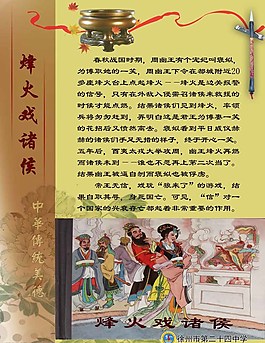 烽火戏诸侯
中华传统美德
春秋战国时期，周幽王有个宠妃叫褒姒，
为博取她的一笑，周幽王下令在都城附近20
多座烽火台上点起烽火——烽火是边关报警
的信号，只有在外敌入侵需召诸侯来救援的
时候才能点燃。结果诸侯们见到烽火，率领
兵将匆匆赶到，弄明白这是君王为博妻一笑
的花招后又愤然离去。褒姒看到平日威仪赫
赫的诸侯们手足无措的样子，终于开心一笑。
五年后，酉夷太戎大举攻周，幽王烽火再燃
而诸侯未到——谁也不愿再上第二次当了。
结果幽王被逼自刎而褒姒也被俘虏。
帝王无信，戏玩“狼来了”的游戏，结
果自取其辱，身死国亡。可见，“信”对一
个国家的兴衰存亡都起着非常重要的作用。
烽火戏诸侯
徐州市第二十四中学